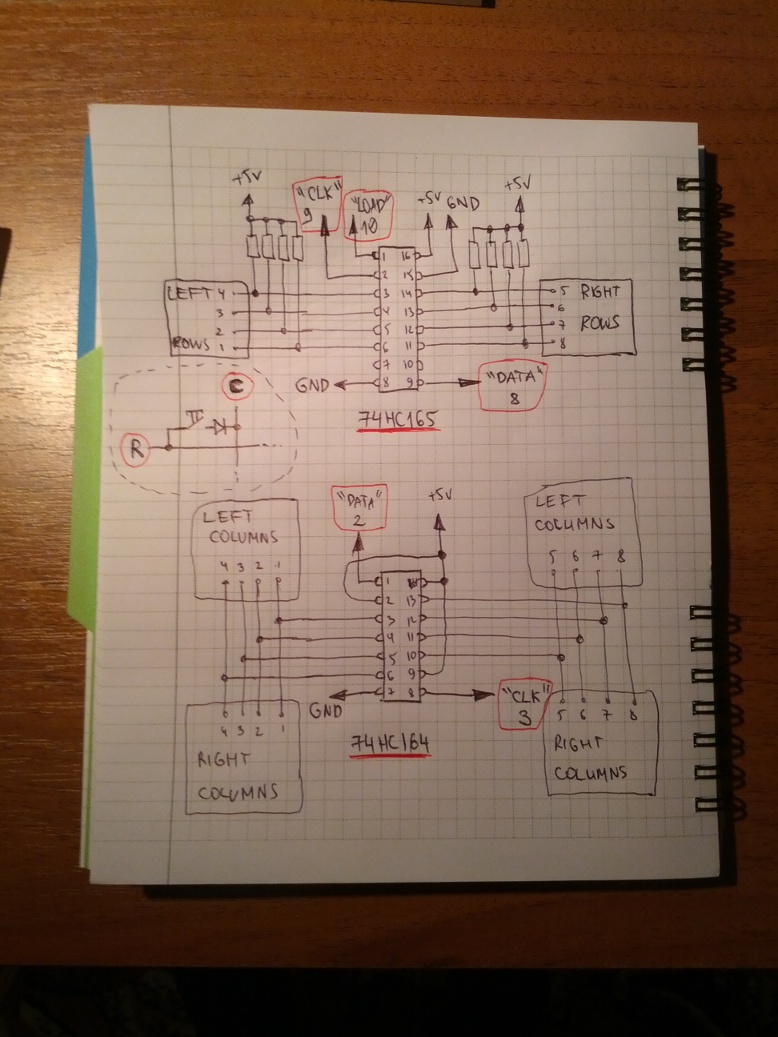 +5V
"CLK"
9
"LOAD"
10
+5V GND
+5V
1 16
2 15
LEFT 4 3 14 5 RIGHT
3 4 13 6
2 5 12 7 ROWS
ROWS 1 6 11 8
7 10
GND 8 9 "DATA"
8
74HC165
C
R
LEFT
COLUMNS
4 3 2 1
"DATA"
2
+5V
LEFT
COLUMNS
5 6 7 8
1 14
2 13
3 12
4 11
5 10
6 9
GND 7 8 "CLK"
3
74HC164
4 3 2 1
RIGHT
COLUMNS
5 6 7 8
RIGHT
COLUMNS